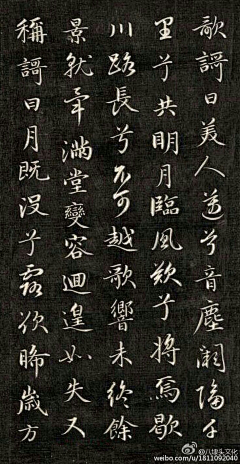 歌謌曰美人邁兮音塵闕隔千
里兮共明月臨風歎兮將焉歇
川路長兮不可越歌響未終餘
景就畢滿堂變容迴遑如失又
稱謌曰月既沒兮露欲晞歲方
@八埭头文化
weibo.com/u/1811092040